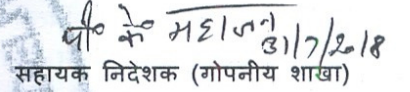 पी० के० महाजन
31/7/2018
सहायक निदेशक (गोपनीय शाखा)